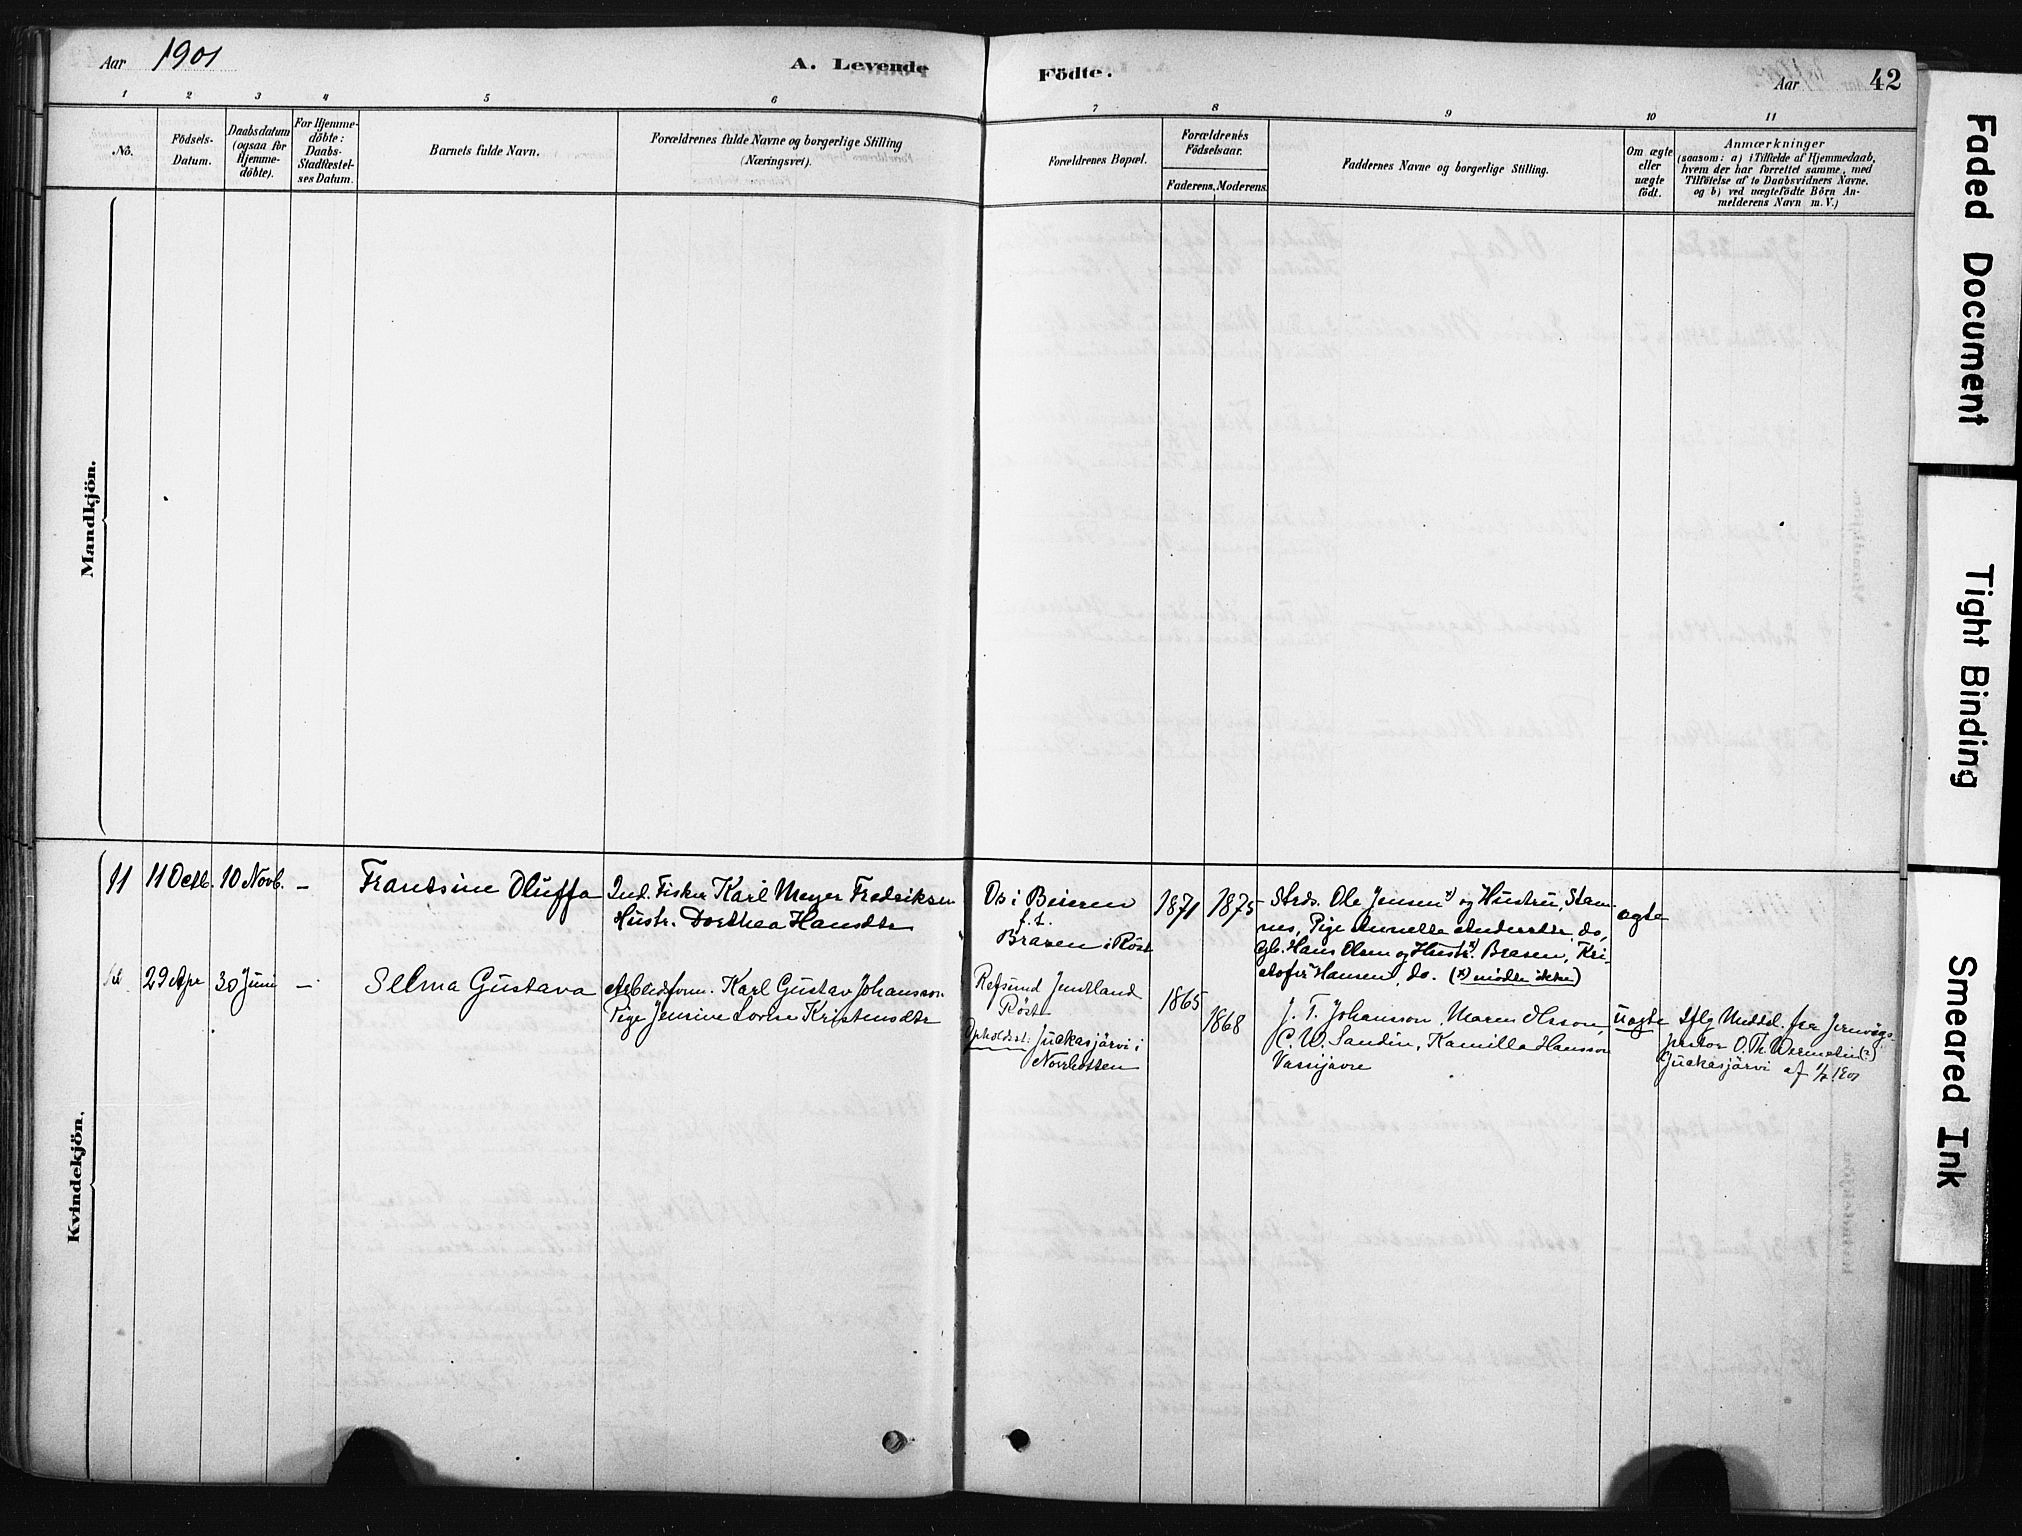 Aar 1901
A. Levende
Födte.
Aar
42
1 2 3 4 5 6 7 8 9 10 11
No.
Födsels-
Datum.
Daabsdatum
(ogsaa for
Hjemme-
döbte).
For Hjemme-
döbte:
Daabs-
Stadfæstel-
ses Datum.
Barnets fulde Navn.
Forældrenes fulde Navne og borgerlige Stilling
(Næringsvei).
Forældrenes Bopæl.
Forældrenes
Födselsaar.
Faderens. Moderens.
Faddernes Navne og borgerlige Stilling.
Om ægte
eller
uægte
födt.
Anmærkninger
(saasom: a) i Tilfælde af Hjemmedaab,
hvem der har forrettet samme, med
Tilföielse af to Daabsvidners Navne.
og b) ved uægtefödte Börn An-
melderens Navn m. V.)
Mandkjön.
Kvindekjön.
11 11 Octb. 10 Novb. –
Frantsine Oluffa
Ind. Fisker Karl Meyer Fredriksen
Hustr. Dorthea Hansdtr
Os i Beieren
f. t.
Brasen i Röst
1871 1875
Strds. Ole Jensen x) og Hustru, Stam-
nes, Pige Annette Andersdtr do,
Gb. Hans Olsen og Hustr. x) Brasen, Kri-
stofer Hansen, do. (x) mödte ikke)
ægte
29 Apr 30 Juni –
Selma Gustava
Arbeidsform. Karl Gustav Johansson
Pige Jensine Lovise Kristensdtr
Refsund Jemtland
Röst
Opholdsst: Juckasjärvi i
Norrbotten
1865
1868
J. T. Johansson, Maren Olsson,
C. W. Sandin, Kamilla Hansson
Vassijavre
uægte
Iflg Meddel. fra Jernvägs-
pastor O. Th. Wermelin (?)
Juckasjärvi af 1/7 1901
Faded Document
Tight Binding
Smeared Ink